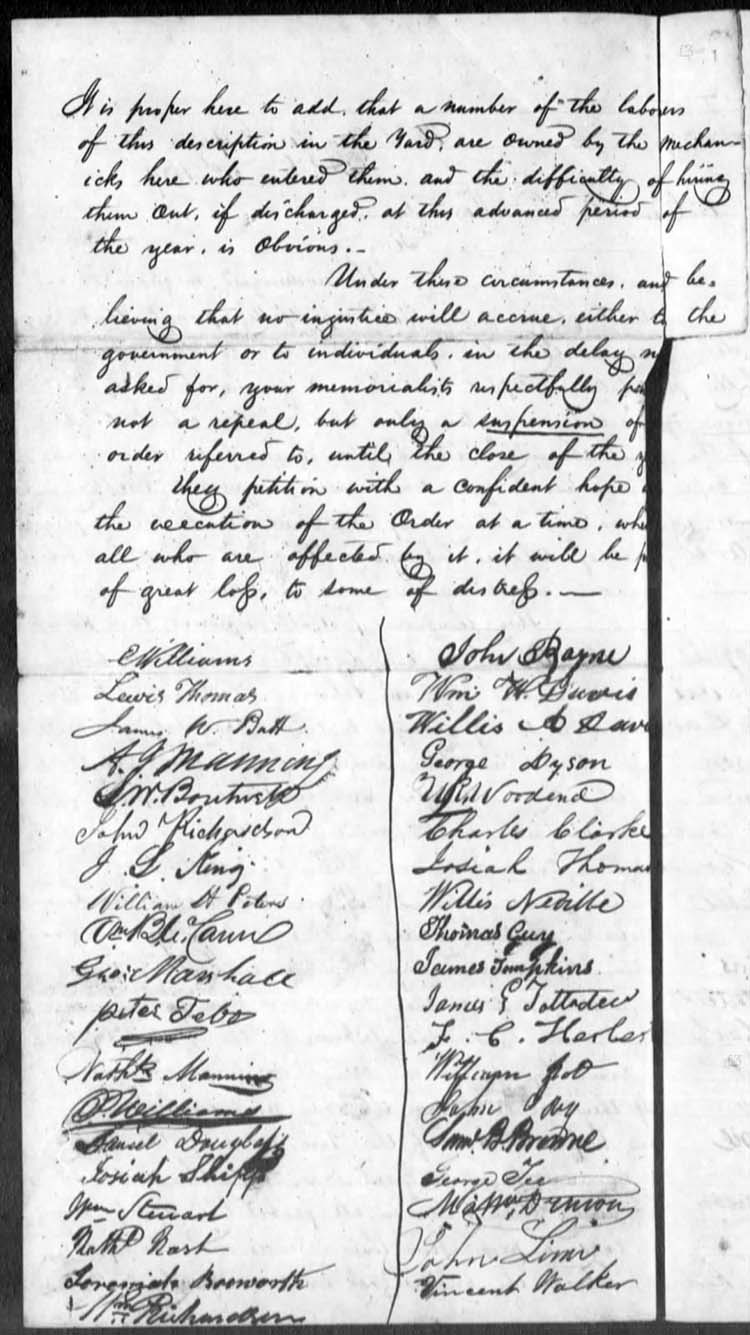 It is proper here to add, that a number of the labours
of this description in the Yard, are owned by the mechan-
icks here who entered them, and the difficulty of hiring
them out, if discharged, at this advanced period of
the year, is obvious.-
Under these circumstances, and be-
lieving that no injustice will accrue, either to the
government or to individuals, in the delay
asked for, your memorialists respectfully
not a repeal, but only a suspension of
order referred to, until the close of the
They petition with a confident hope
the execution of the Order at a time,
all who are affected by it, it will be
of great loss, to some of distress.-
C Williams
Lewis Thomas
James W Batt
A. J Manning
John Richardson
J. S. King
William H. Peters
Geo: Marshall
Peter Tebo
Manning
Williams
Daniel Douglass
Josiah Shipp
Wm Stewart
Nathl Nash
Bosworth
Wm Richardson
John Rayne
Wm H. Davis
Willis A Davi
George Dyson
Charles Clarke
Josiah Thomas
Willis Neville
Thomas Guy
James Tompkins
James
F. C. Herber
William
John
Saml B Browne
George Tee
John
Vincent Walker